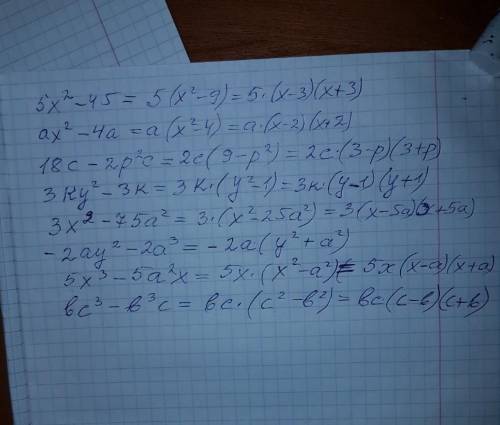 5x² - 45 = 5(x² - 9) = 5·(x-3)(x+3)
ax² - 4a = a(x² - 4) = a·(x-2)(x+2)
18c - 2p²c = 2c(9 - p²) = 2c·(3-p)(3+p)
3кy² - 3к = 3к·(y² - 1) = 3к(y-1)(y+1)
3x² - 75a² = 3·(x² - 25a²) = 3(x-5a)(x+5a)
-2ay² - 2a³ = -2a(y² + a²)
5x³ - 5a²x = 5x·(x² - a²) = 5x(x-a)(x+a)
вc³ - в³c = вc·(c² - в²) = вc(c-в)(c+в)